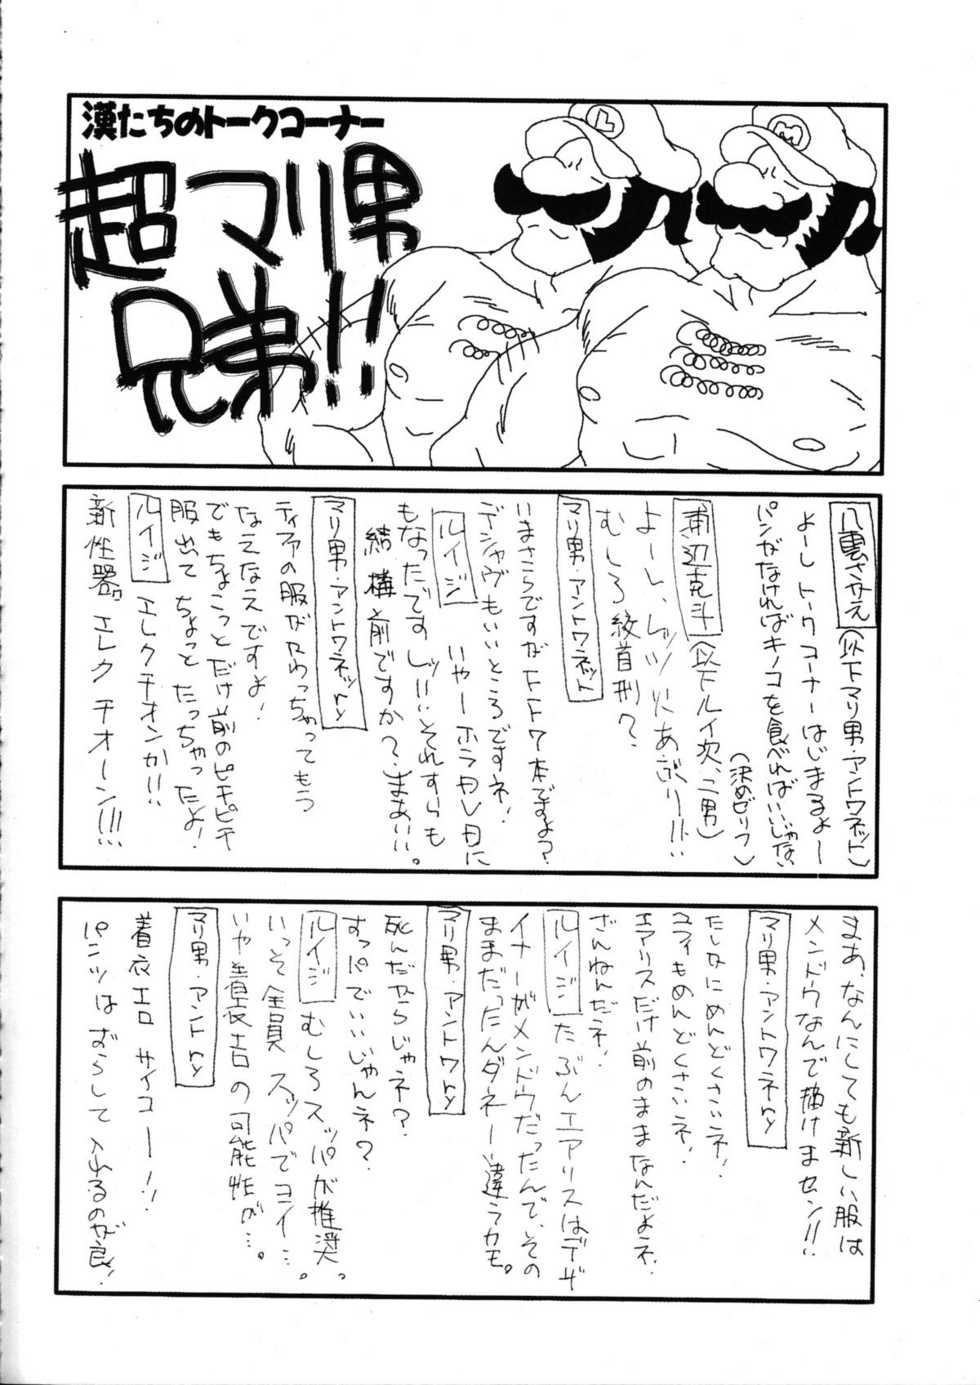 漢たちのトークコーナー
超マリ男
兄弟!!
L
M
八裏さかえ(以下マリ男・アントワネット)
よーしトークコーナーはじまるよー
パンがなければキノコを食べればいいじゃない
(決めゼリフ)
浦辺克斗(以下ルイ次、二男)
よーし、レッツ火あぶり!!
むしろ絞首刑?
マリ男・アントワネット
いまさらですがFF7本ですよ?
デシャヴもいいところですネ!
ルイジ いやーホラ月レ日に
もなったですしッ!!それすらも
結構前ですか?まあいい。
マリ男・アントワネッry
ティファの服がかわっちゃってもう
なえなえですよ!
でもちょこっとだけ前のピチピチ
服出てちょっとたっちゃったよ!
ルイジ エレクチオンか!!
新性器 エレクチオーン!!!
まあ、なんにしても新しい服は
メンドウなんで描けませン!!
マリ男・アントワネry
たしかにめんどくさいネ!
ユフィもめんどくさいネ!
エアリスだけ前のままなんだよネ!
ざんねんだネ!
ルイジ たぶんエアリスはデザ
イナーがメンドウだったんで、その
ままだったんダネー違うカモ。
マリ男・アントワry
死んだからじゃネ?
すっパでいいじゃんネ?
ルイジ むしろスッパが推奨。
いっそ全員スッパでコイ…。
いや着衣エロの可能性が…。
マリ男・アントry
着衣エロサイコー!!
パンツはずらして入れるのが良!